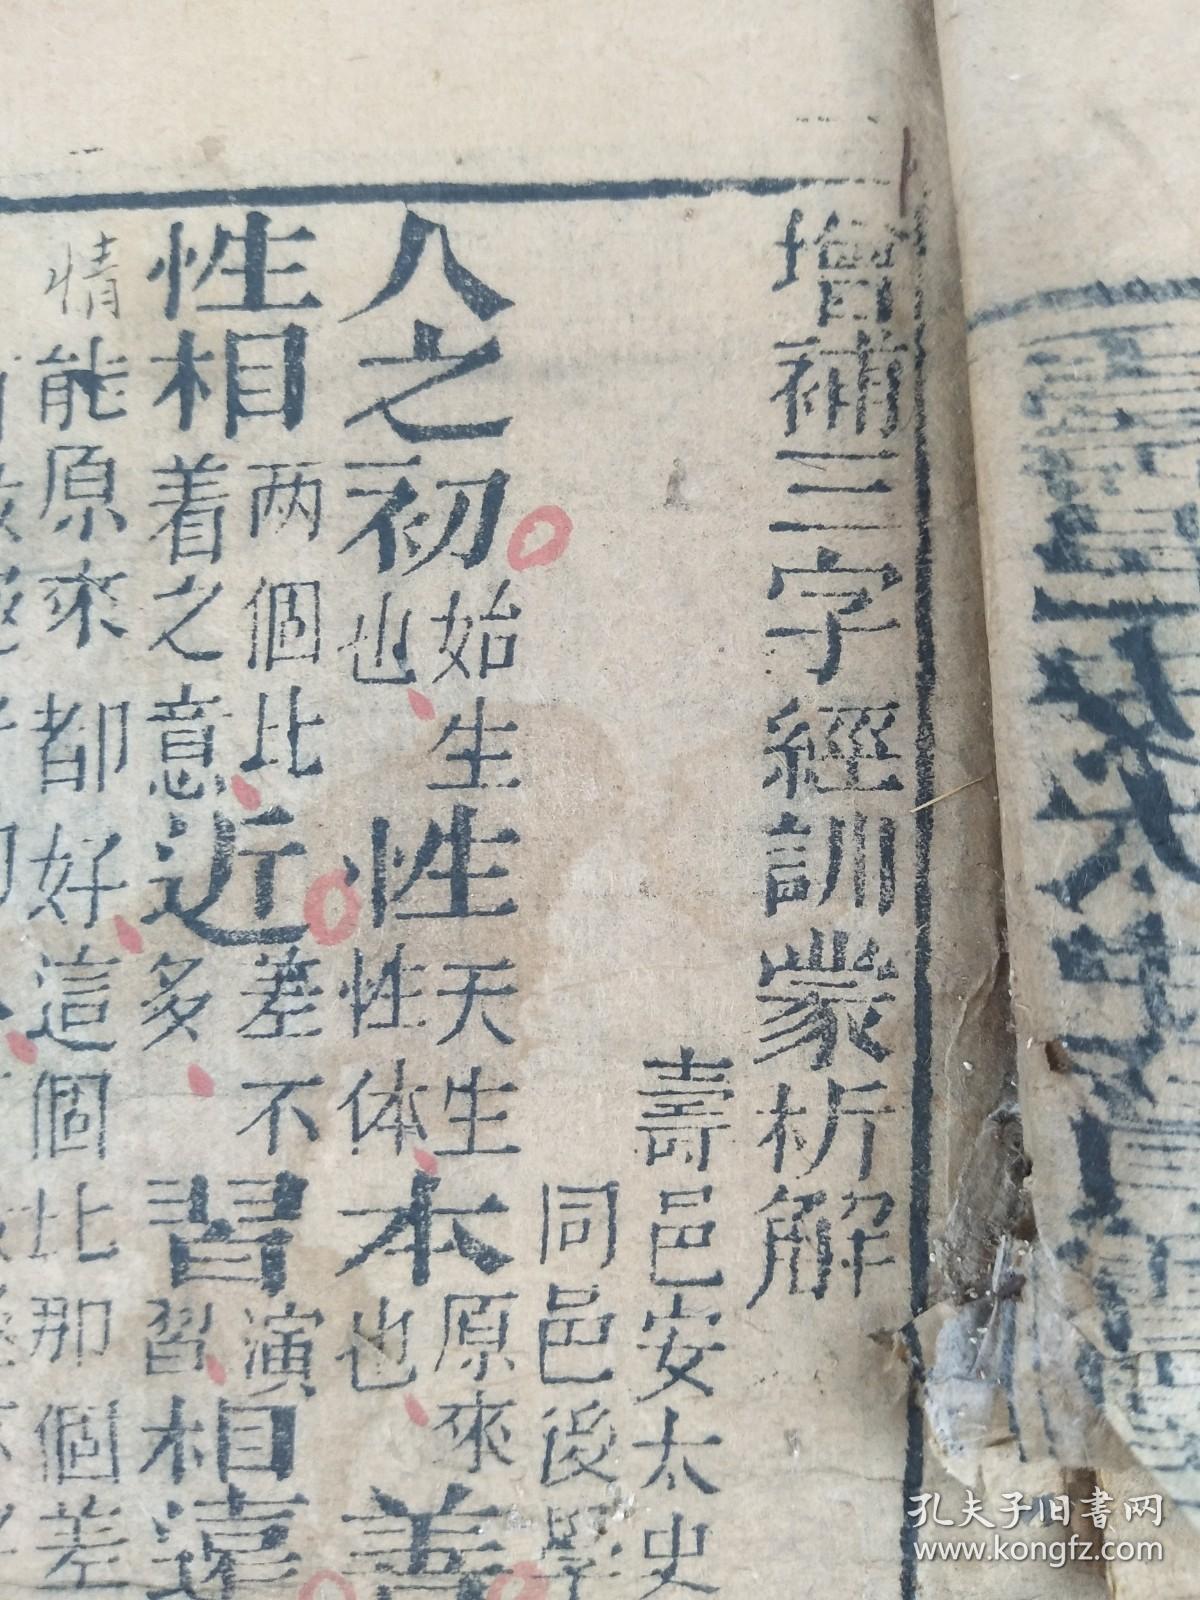 增補三字經訓蒙析解
壽邑安太史
同邑後學
人之初始生也性天生性体本原來也善
性相两個比着之意近差不多習演習相遠
情能原來都好這個比那個差
孔夫子旧书网
www.kongfz.com